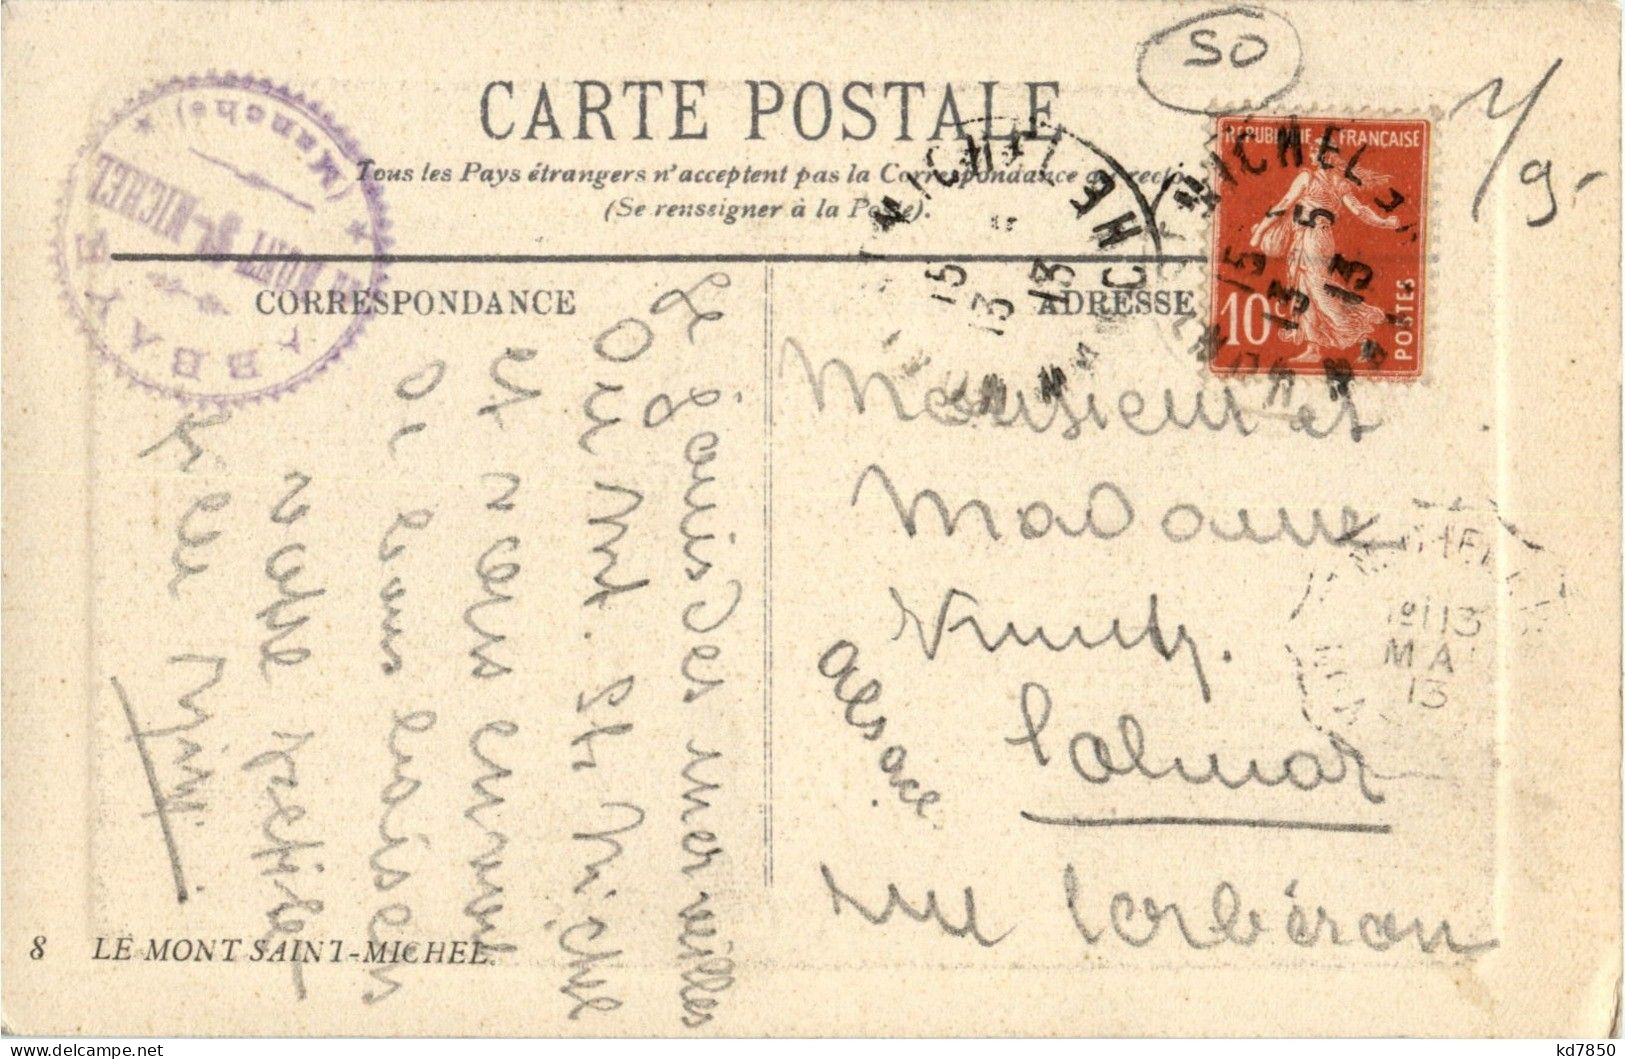 50
1/9.-
CARTE POSTALE
Tous les Pays étrangers n'acceptent pas la Correspondance au recto
(Se renseigner à la Poste).
ABBAYE
DU MONT St-MICHEL
(Manche)
REPUBLIQUE FRANÇAISE
10c
POSTES
MICHEL
15 5
13
13
MANCHE
CORRESPONDANCE
ADRESSE
Le des merveilles
Du Mt. St. Michel
et vous envoie
De bons baisers
votre petite
Monsieur et
Madame
Colmar
Alsace
rue Corbéron
MAI
13
8 LE MONT SAINT-MICHEL.
kd7850